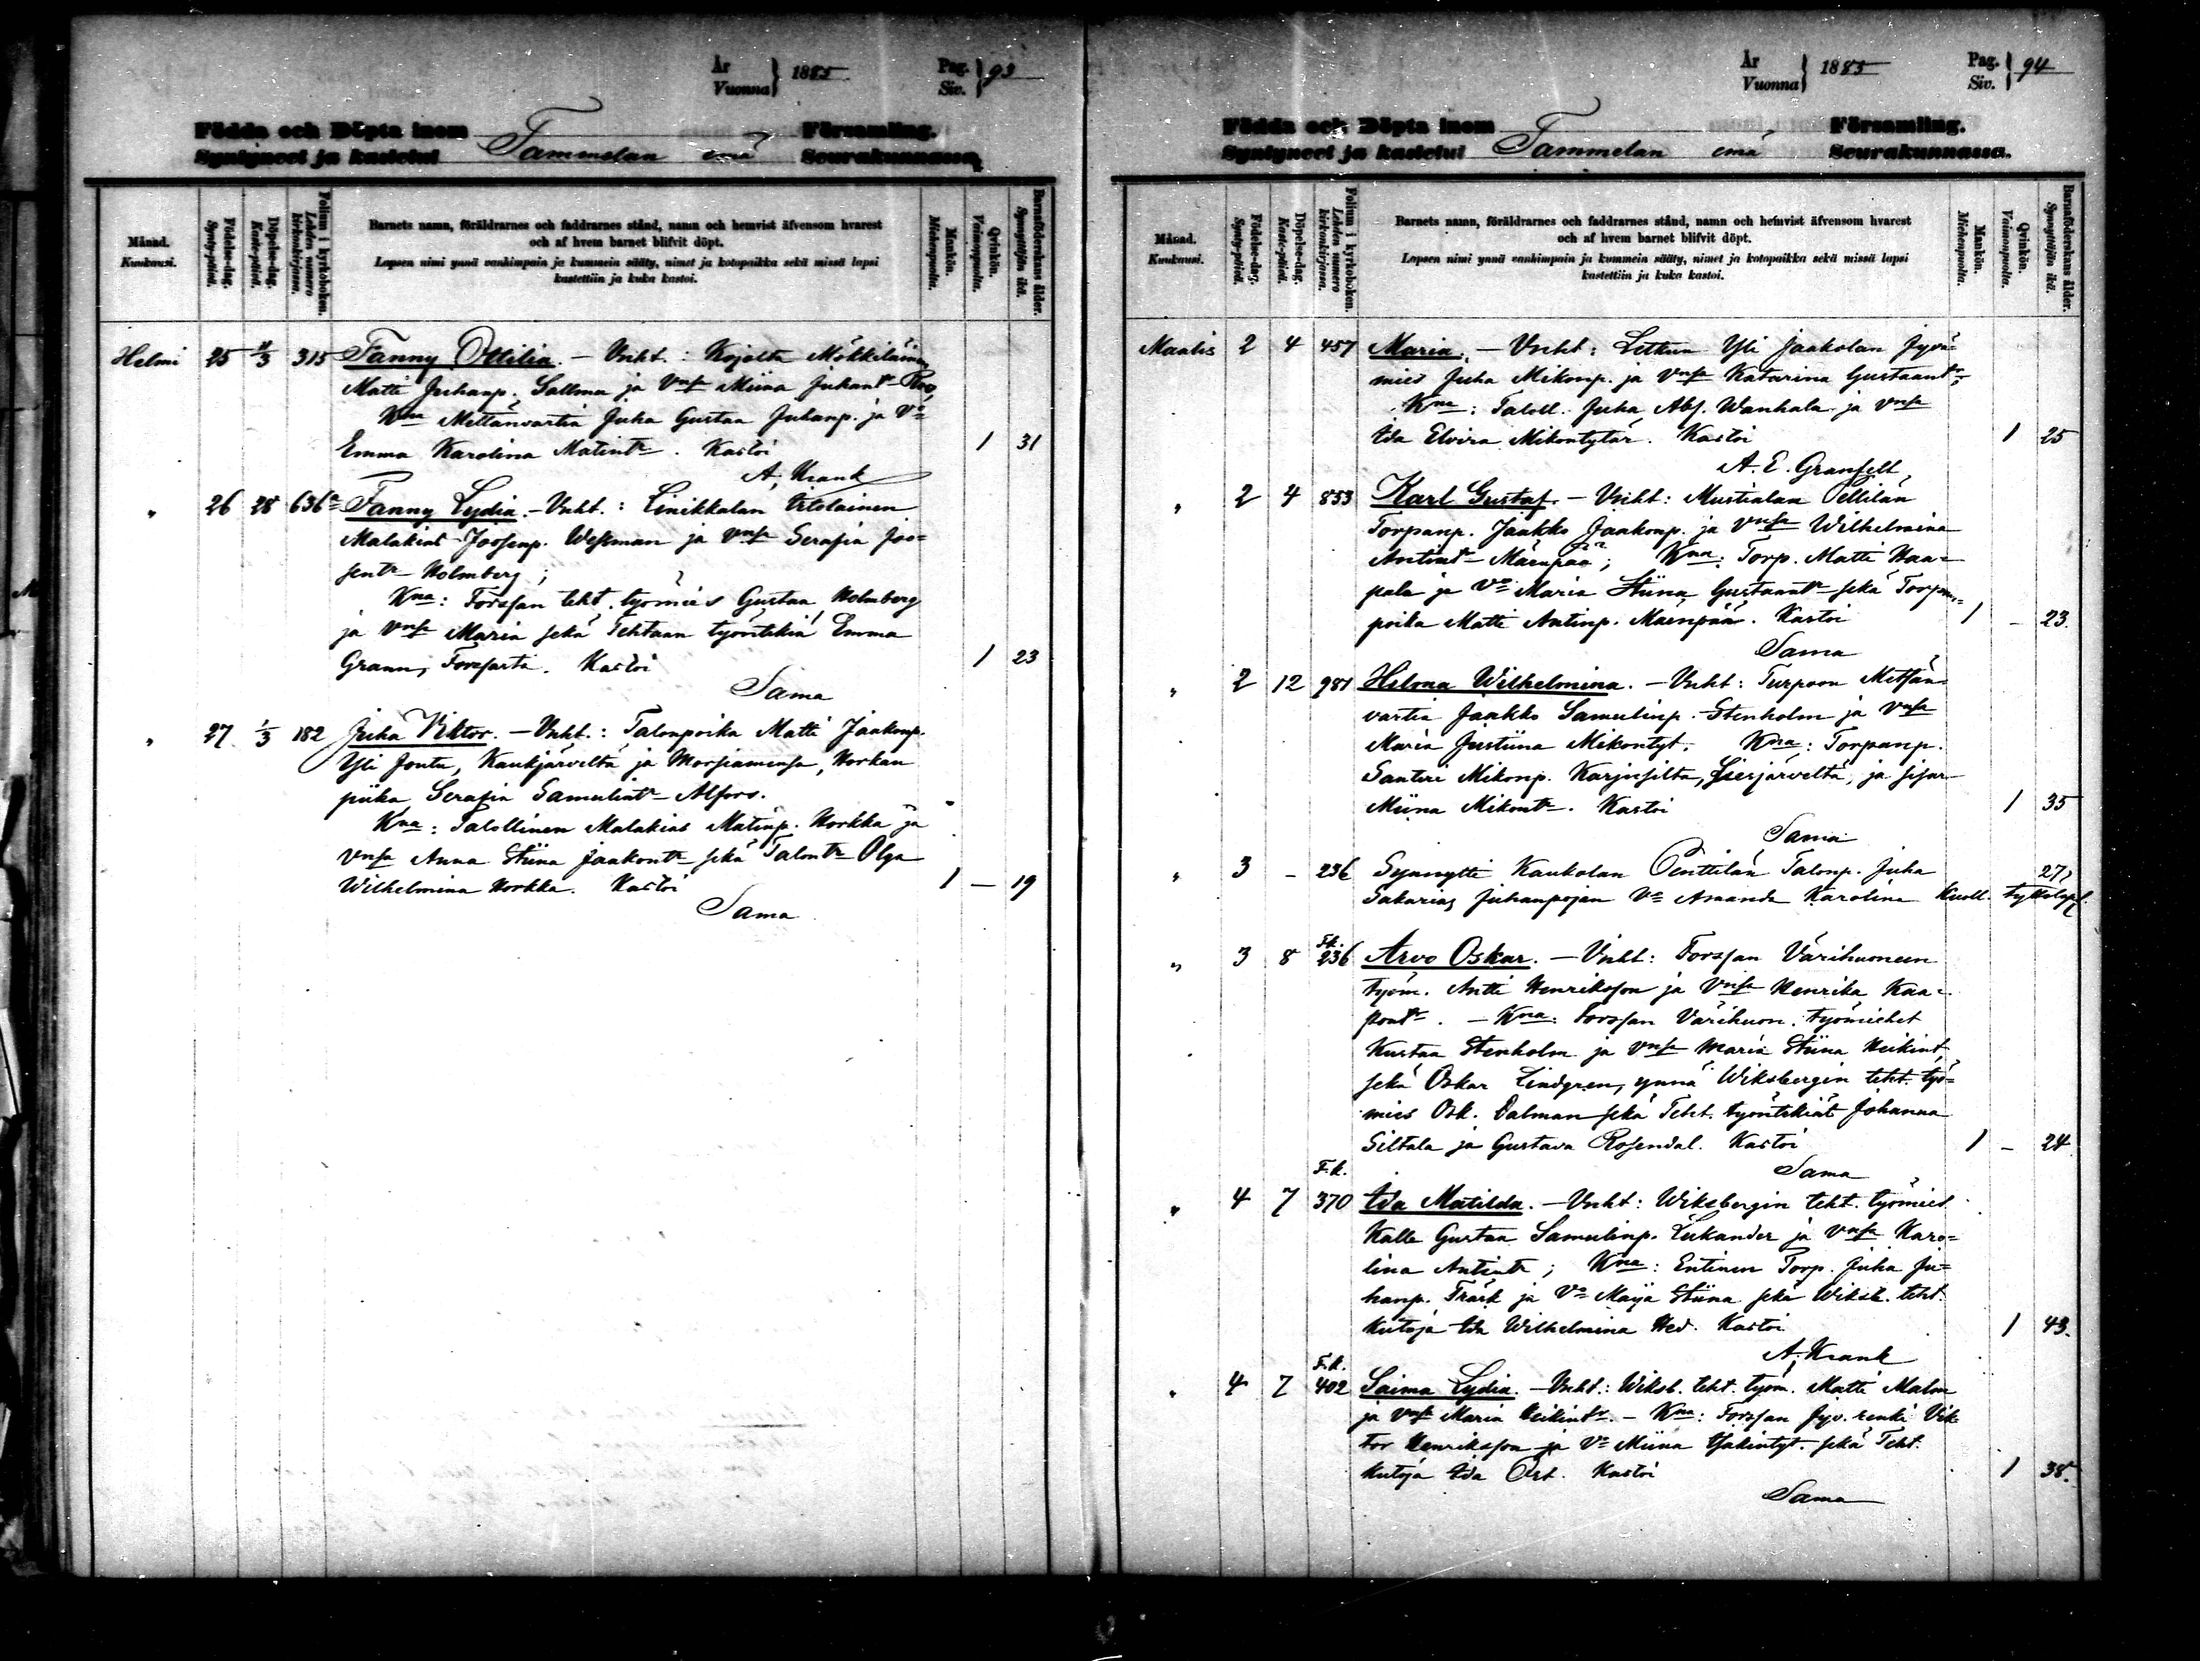 År
Vuonna } 1885
Pag.
Siv. } 93
Födda och Döpta inom Församling.
Syntyneet ja kastetut Tammelan emä Seurakunnassa
Månad.
Kuukausi.
Födelse-dag.
Synty-päivä.
Döpelse-dag.
Kaste-päivä.
Folium i kyrkoboken.
Lehden numero kirkonkirjassa.
Barnets namn, föräldrarnes och faddrarnes stånd, namn och hemvist äfvensom hvarest
och af hvem barnet blifvit döpt.
Lapsen nimi ynnä vanhimpain ja kummein sääty, nimet ja kotopaikka sekä missä lapsi
kastettiin ja kuka kastoi.
Mankön.
Miehenpuolta.
Qvinkön.
Vaimonpuolta.
Barnaföderskans ålder.
Synnyttäjän ikä.
Helmi 25 11/3 315 Fanny Ottilia. – Vnht. : Kojolta Mökkiläinen
Matti Juhanp. Sallma ja Vnsa Miina Juhantr
Kna Mettänvartia Juha Gustaa Juhanp. ja Vo
Emma Karolina Matintr. Kastoi 1 31
A. Krank
" 26 28 636 Fanny Lydia. – Vnht. : Linikkalan Itelainen
Malakias Joosenp. Wessman ja Vnsa Serafia Joo=
sentr Holmberg ;
Kna : Forssan teht. työmies Gustaa Holmberg
ja Vnsa Maria sekä Tehtaan työntekiä Emma
Grann, Forssasta. Kastoi 1 23
Sama
" 27 1/3 182 Juha Viktor. – Vnht. : Talonpoika Matti Jaakonp.
Yli Jontu, Kaukjärveltä ja Morsiamensa, Horkan
piika Serafia Samulintr Alfors.
Kna : Talollinen Malakias Matinp. Horkka ja
Vnsa Anna Stiina Jaakontr sekä Talontr Olga
Wilhelmina Horkka. Kastoi 1 – 19
Sama
År
Vuonna } 1885
Pag.
Siv. } 94
Födda och Döpta inom Församling.
Syntyneet ja kastetut Tammelan emä Seurakunnassa.
Månad.
Kuukausi.
Födelse-dag.
Synty-päivä.
Döpelse-dag.
Kaste-päivä.
Folium i kyrkoboken.
Lehden numero kirkonkirjassa.
Barnets namn, föräldrarnes och faddrarnes stånd, namn och hemvist äfvensom hvarest
och af hvem barnet blifvit döpt.
Lapsen nimi ynnä vanhimpain ja kummein sääty, nimet ja kotopaikka sekä missä lapsi
kastettiin ja kuka kastoi.
Mankön.
Miehenpuolta.
Qvinkön.
Vaimonpuolta.
Barnaföderskans ålder.
Synnyttäjän ikä.
Maalis 2 4 457 Maria. – Vnht : Letkun Yli Jaakolan Jyvä=
mies Juha Mikonp. ja Vnsa Katarina Gustaantr,
Kna : Taloll. Juha Abs. Wanhala ja Vnsa
Ida Elvira Mikontytär. Kastoi 1 25
A. E. Granfelt,
" 2 4 853 Karl Gustaf. – Vnht : Mustialan Pellilän
Torpanp. Jaakko Jaakonp. ja Vnsa Wilhelmina
Antintr Mäenpää ; Kna : Torp. Matti Haa=
pala ja Vo Maria Stiina Gustaantr sekä Torpan=
poika Matti Antinp. Mäenpää. Kastoi 1 – 23.
Sama
" 2 12 981 Helma Wilhelmina. – Vnht : Turpoon Metsän
vartia Jaakko Samulinp. Stenholm ja Vnsa
Maria Justiina Mikontyt. Kna : Torpanp.
Santeri Mikonp. Karjusilta, Liesjärveltä, ja sisar
Miina Mikontr. Kastoi 1 35
Sama
" 3 – 236 Synnytti Kaukolan Penttilän Talonp. Juha 27,
Sakarias Juhanpojan Vo Amanda Karolina Kuoll. tyttölaps.
" 3 8 F.k. 236 Arvo Oskar. – Vnht : Forssan Värihuoneen
työm. Antti Henriksson ja Vnsa Henrika Kaa=
pontr. – Kna : Forssan Värihuon. työmiehet
Kustaa Stenholm ja Vnsa Maria Stiina Heikint.
sekä Oskar Lindgren, ynnä Wiksbergin teht. työ=
mies Osk. Dalman sekä Teht. työntekiät Johanna
Siltala ja Gustava Rosendal. Kastoi 1 – 24
Sama
" 4 7 F.k. 370 Ida Matilda. – Vnht : Wiksbergin teht. työmies
Kalle Gustaa Samulinp. Lukander ja Vnsa Karo=
lina Antintr ; Kna : Entinen Torp. Juha Ju=
hanp. Träsk ja Vo Maija Stiina sekä Wiksb. teht.
kutoja Ida Wilhelmina Hed. Kastoi 1 43.
A. Krank
" 4 7 F.k. 402 Saima Lydia. – Vnht. : Wiksb. teht. työm. Matti Malm
ja Vnsa Maria Heikintr. – Kna : Forssan Jyv. renki Vik
tor Henriksson ja Vo Miina Isakintyt. sekä Teht.
kutoja Ida Öst. Kastoi 1 38.
Sama